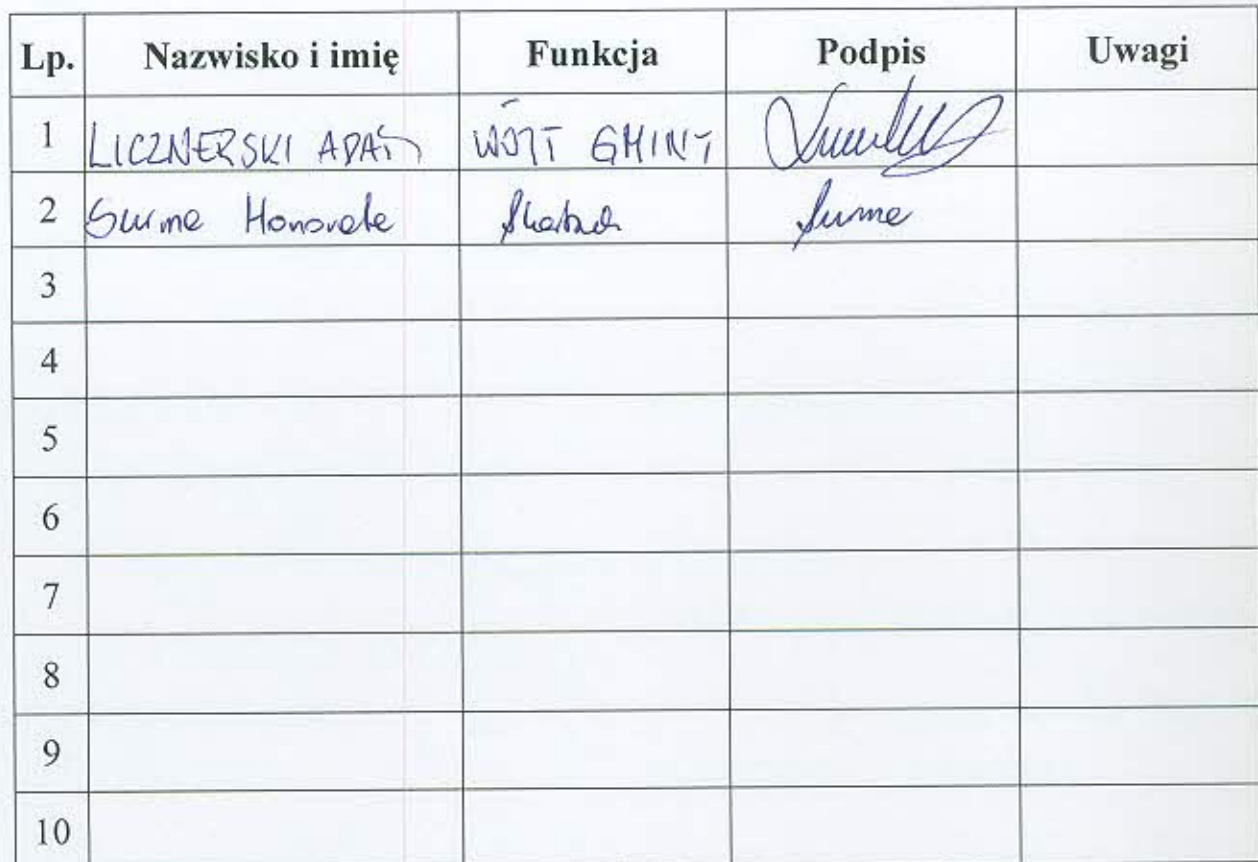 Lp. Nazwisko i imię Funkcja Podpis Uwagi
1 LICZNERSKI ADAM WÓJT GMINY
2 Surma Honorata Skarbnik Surma
3
4
5
6
7
8
9
10